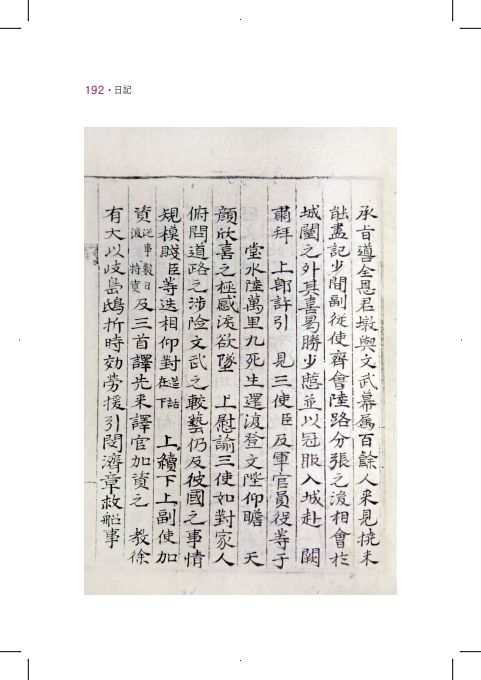 192 • 日記
承旨尊全恩君墩與文武幕属百餘人来見撓未
能盡記少間副從使齊會陸路分張之後相會於
城闉之外其喜曷勝少憩並以冠服入城赴 闕
肅拜 上即許引 見三使臣及軍官員役等于
堂水陸萬里九死生還復登文陛仰瞻 天
顔欣喜之極感淚欲墜 上慰諭三使如對家人
俯問道路之涉險文武之較藝仍及彼國之事情
規模賤臣等迭相仰對筵話在下 上續下上副使加
資從事製日後 持賣及三首譯先来譯官加資之 教徐
有大以岐島鴟折時効勞援引閔濟章救船事